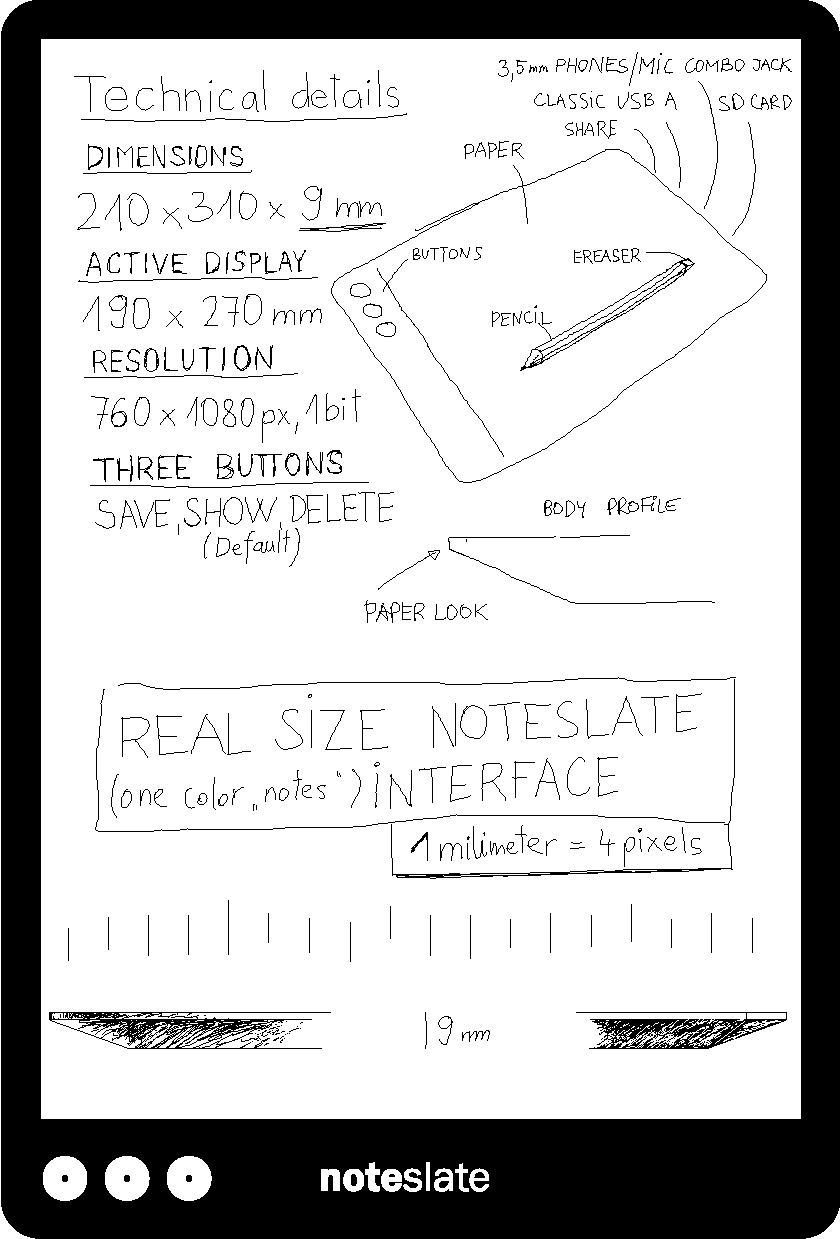 Technical details
DIMENSIONS
210 x 310 x 9 mm
ACTIVE DISPLAY
190 x 270 mm
RESOLUTION
760 x 1080px, 1bit
THREE BUTTONS
SAVE, SHOW, DELETE
(Default)
3,5mm PHONES/MiC COMBO JACK
CLASSiC USB A
SD CARD
SHARE
PAPER
BUTTONS
EREASER
PENCiL
BODY PROFiLE
PAPER LOOK
REAL SiZE NOTESLATE
(one color „notes“) iNTERFACE
1 milimeter = 4 pixels
9 mm
noteslate